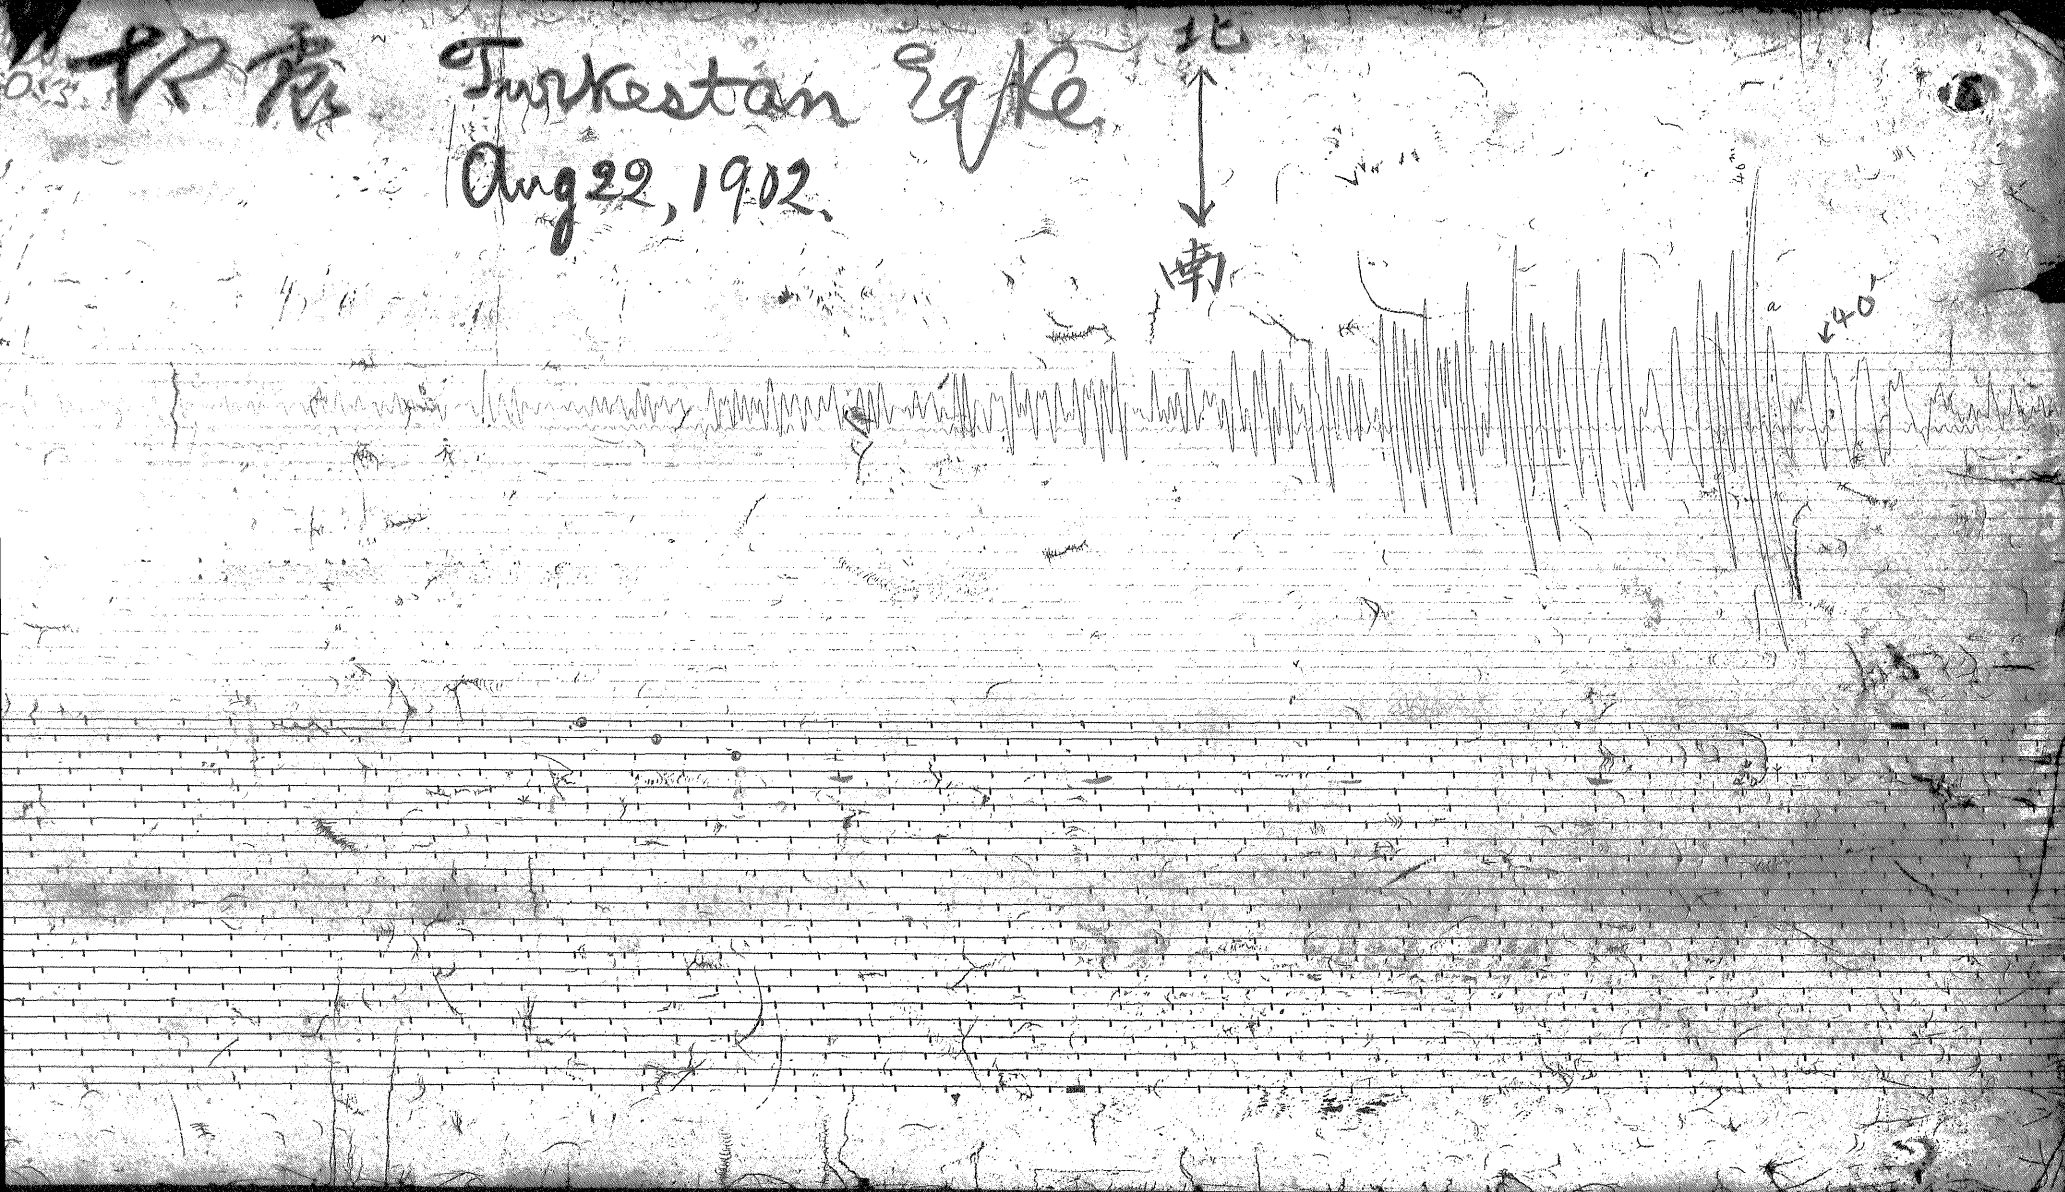 地震 Turkestan Eqke.
Aug 22, 1902.
北
南
40